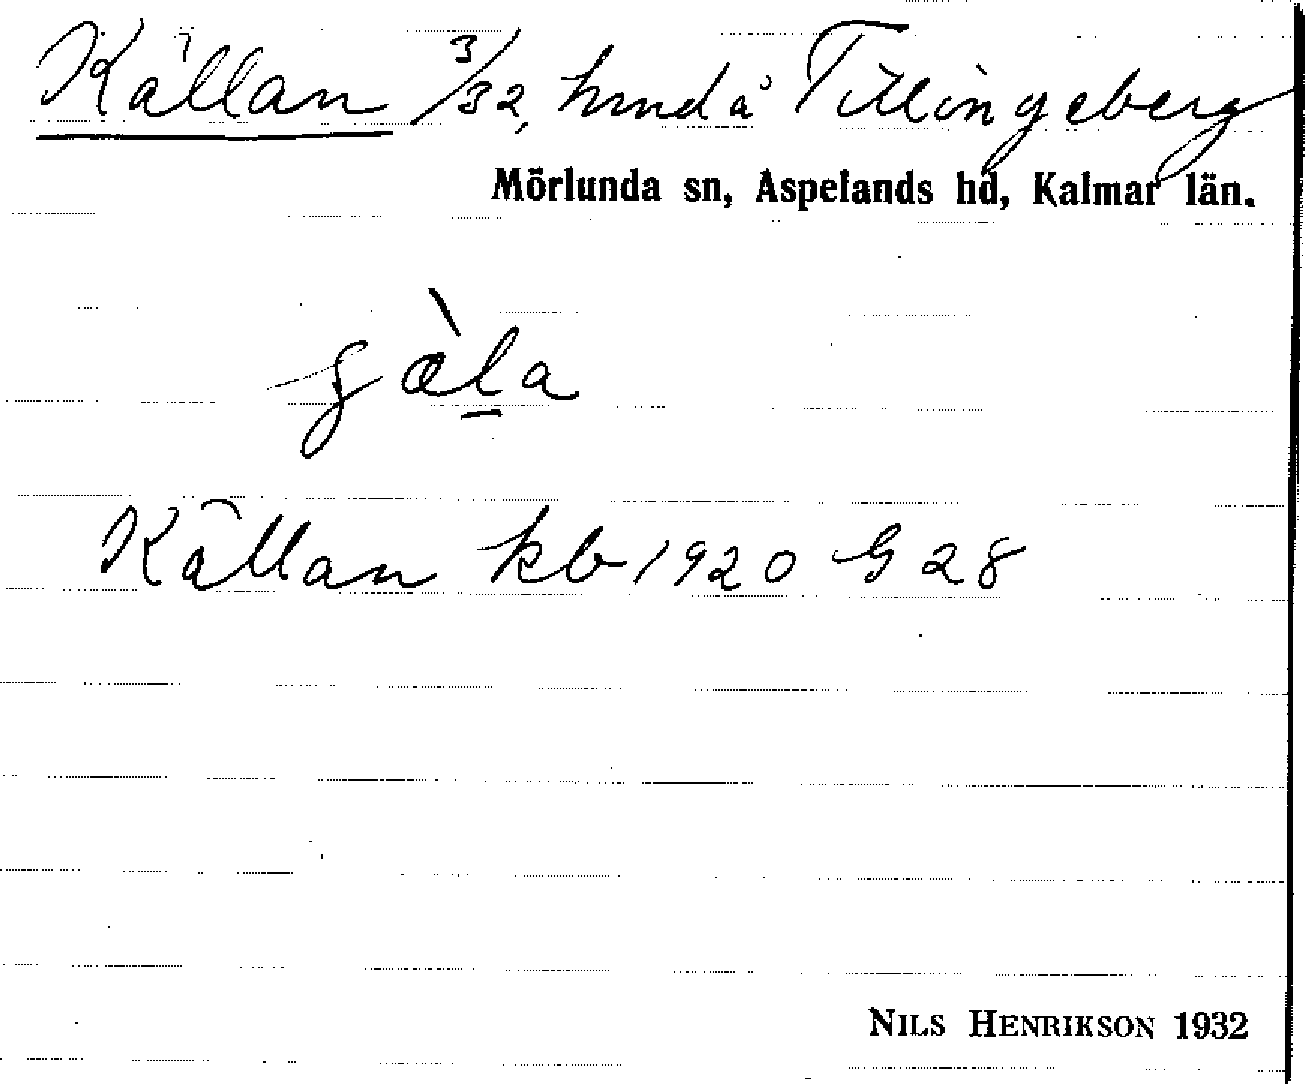 Källan 3/32, hmd å Tillingeberg
Mörlunda sn, Aspelands hd, Kalmar län.
Källan kb 1920 G 28
NILS HENRIKSON 1932